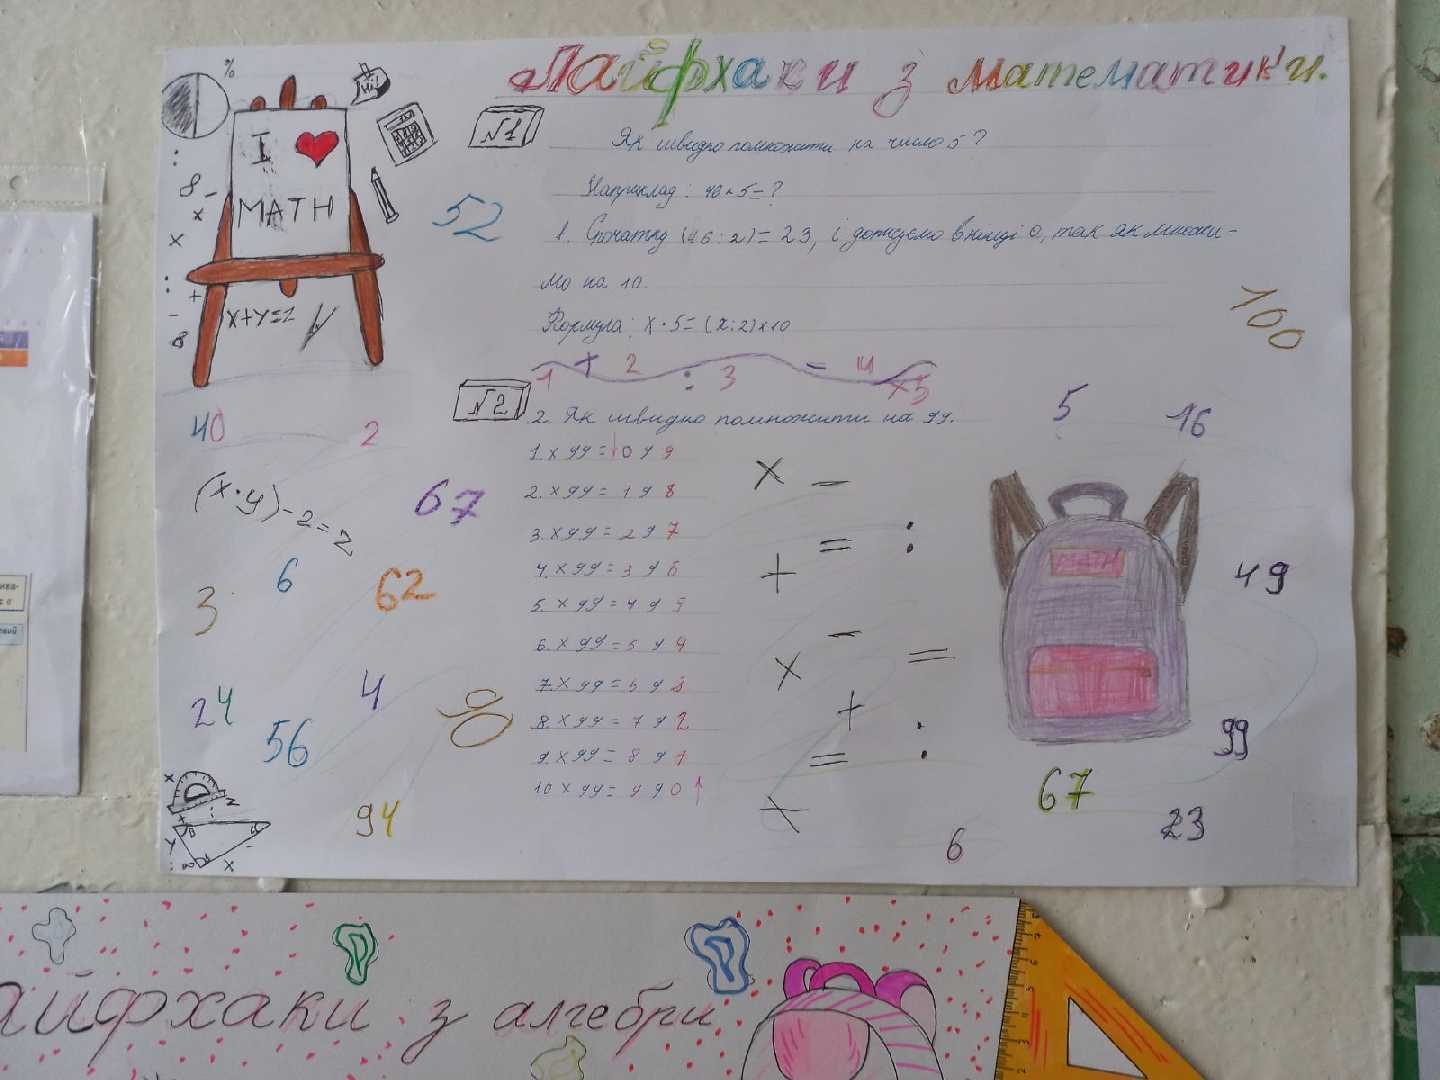 Лайфхаки з математики.
%
Hi
I
MATH
x+y=2
№1
Як швидко помножити на число 5?
Наприклад: 46×5=?
1. Спочатку (46:2)=23, і дописуємо в кінці 0, так як множи-
мо на 10.
Формула: x·5=(x:2)×10
1 + 2 : 3 = 4 ×5
№2
2. Як швидко помножити на 99.
1. × 99 = 0 9 9
2. × 99 = 1 9 8
3. × 99 = 2 9 7
4. × 99 = 3 9 6
5. × 99 = 4 9 5
6. × 99 = 5 9 4
7. × 99 = 6 9 3
8. × 99 = 7 9 2
9. × 99 = 8 9 1
10 × 99 = 9 9 0
52
100
40
2
5
16
(x·y)-2=2
67
3
6
62
49
24
4
56
99
94
67
23
6
× −
= :
+
−
× =
+
= :
MATH
айфхаки з алгебри